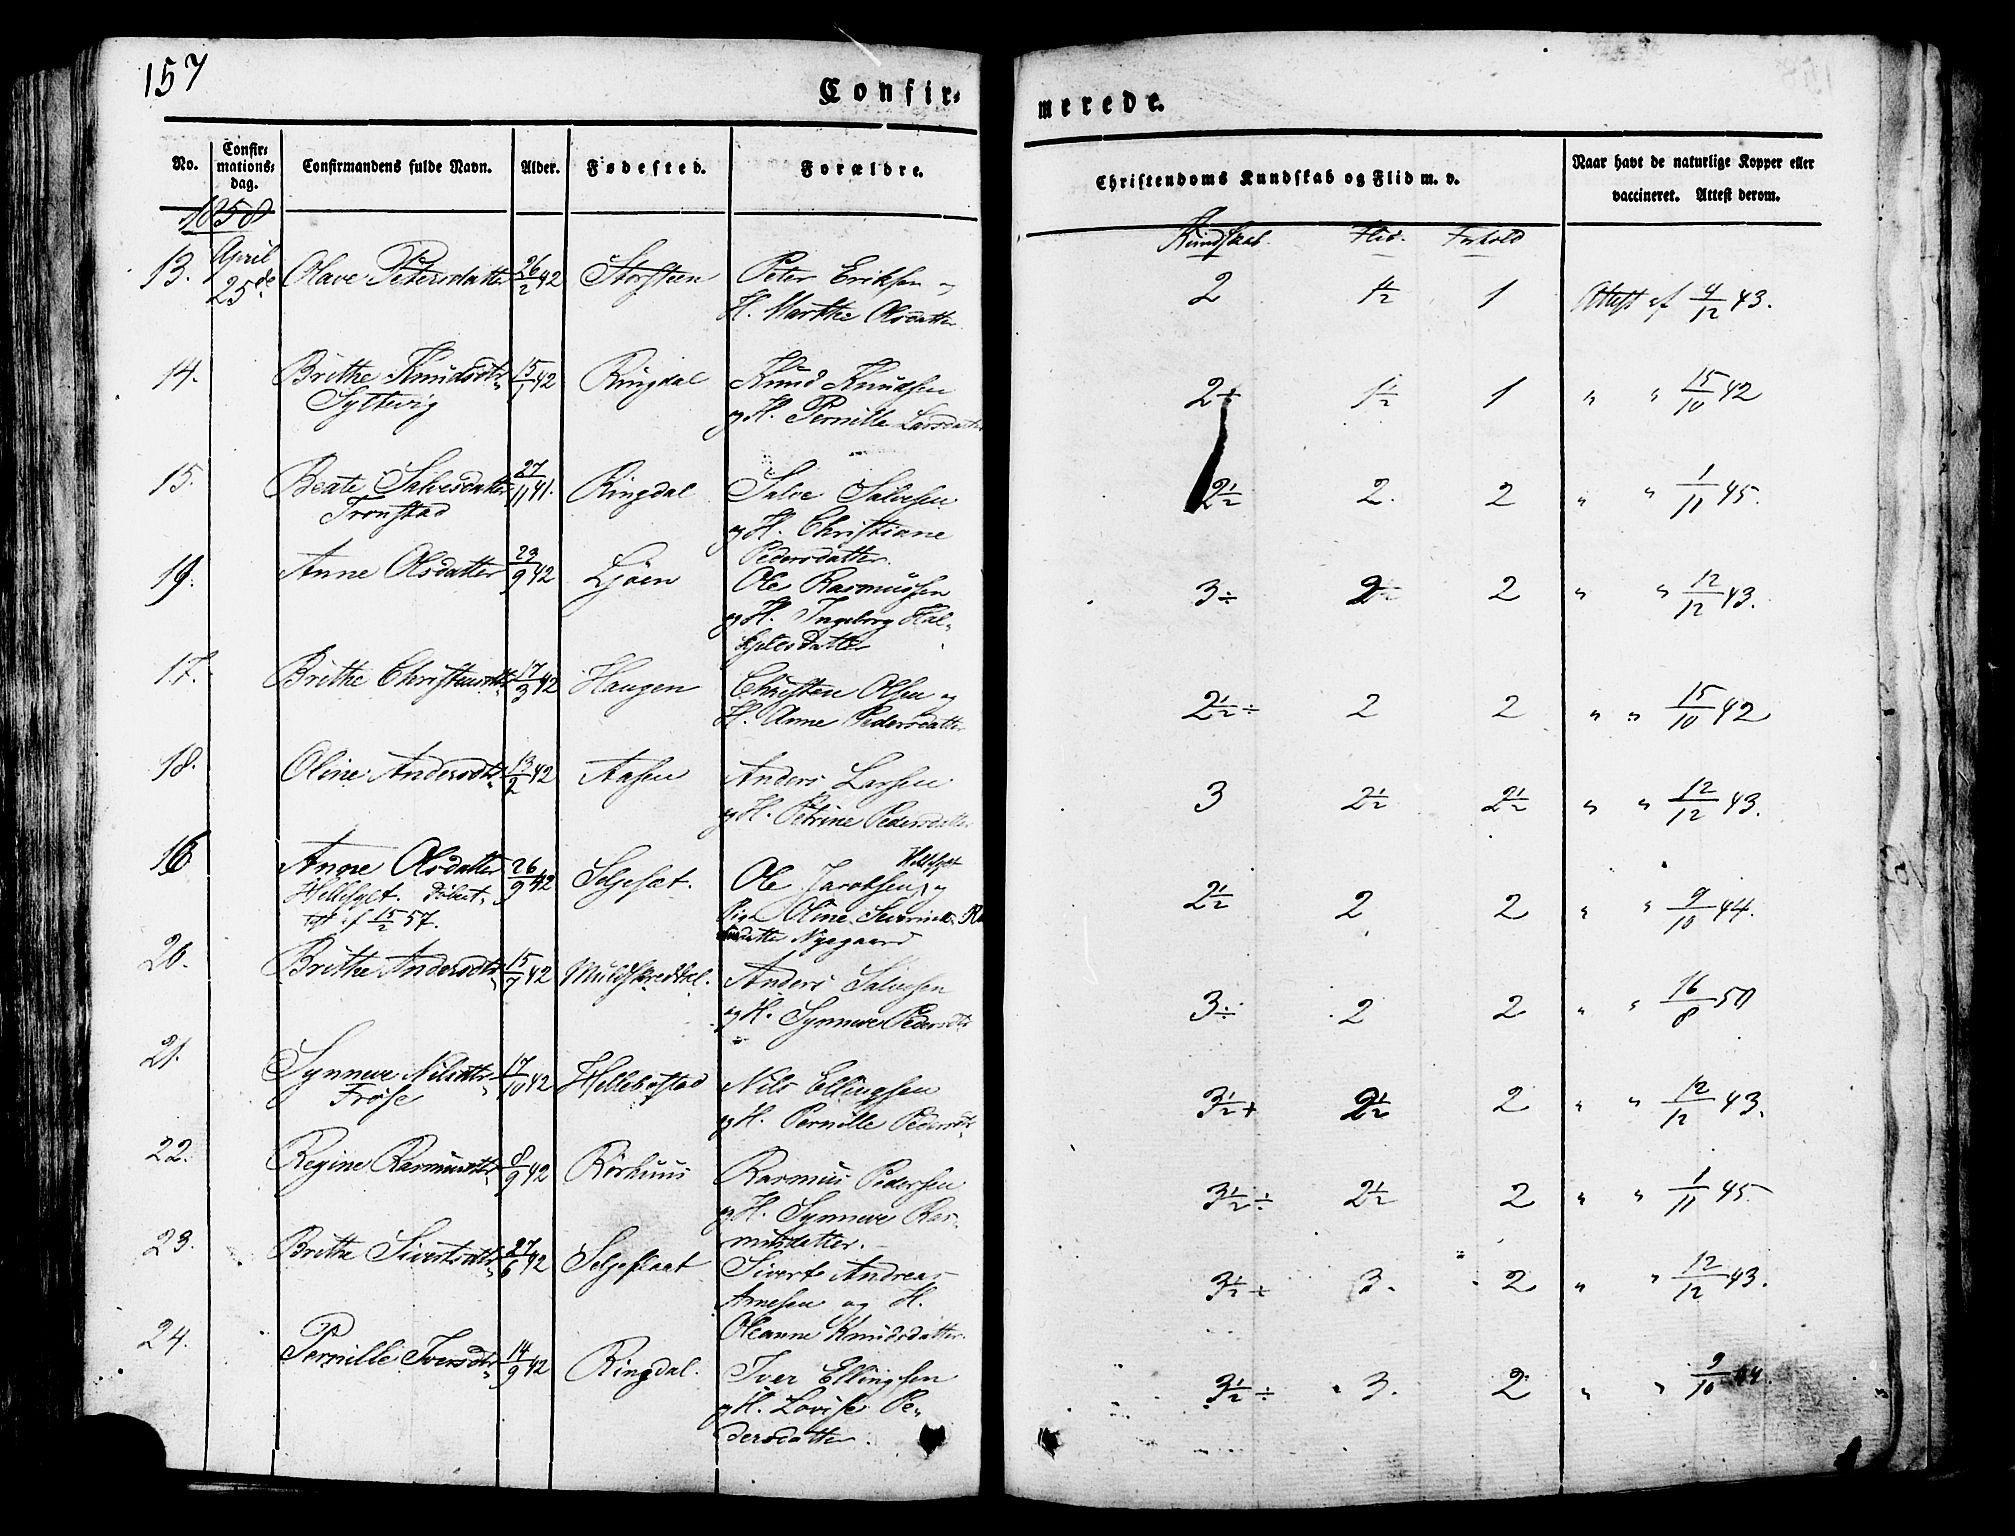 157
Confir-
merede.
No.
Confir-
mations-
dag.
Confirmandens fulde Navn.
Alder.
Fødested.
Forældre.
Christendoms Kundskab og Flid m. v.
Naar havt de naturlige Kopper eller
vaccineret. Attest derom.
1858
Kundskab. Flid. Forhold
13. April 25de Olave Petersdatter 26/2 42 Storsteen Peter Eriksen og
H. Marthe Olsdatter
2 1½ 1 Attest af 4/12 43.
14. Brithe Knudsdtr 15/7 42 Ringdal Knud Knudsen
Syltevig og H. Pernille Larsdatter
2÷ 1½ 1 " " 15/10 42
15. Beate Salvesdatter 27/11 41. Ringdal Salve Salvesen
Tronstad og H. Christiane
Pedersdatter.
2½ 2. 2 " " 1/11 45.
19. Anne Olsdatter 23/9 42 Ljöen Ole Rasmussen
og H. Ingeborg Hal-
kjeldsdatter
3÷ 2 2 " " 12/12 43.
17. Brithe Christensdtr 17/3 42 Haugen Christen Olsen og
H. Anne Pedersdatter
2½÷ 2 2 " " 15/10 42
18. Oline Andersdtr 13/2 42 Aasen Anders Larsen
og H. Petrine Pedersdatter
3 2½ 2½ " " 12/12 43.
16 Anne Olsdatter 26/9 42 Seljeset. Ole Jacobsen Hellesylt og
Hellesylt. Döbeat-
test af 15/2 57.
Pige Oline Severine
datter Nygaard
2½ 2 2 " " 9/10 44.
20. Brithe Andersdtr 15/7 42 Muldskredbel. Anders Salvesen
og H. Synneve Pedersdtr
3÷ 2 2 " " 16/8 50
21. Synneve Nilsdtr 17/10 42 Hellebostad Nils Ellingsen
Fröse og H. Pernille Pedersdtr
3½+ 2½ 2 " " 12/12 43.
22. Regine Rasmusdtr 8/9 42 Rörhuus Rasmus Pedersen
og H. Synneve Ras-
musdatter.
3½÷ 2½ 2 " " 1/11 45
23. Brithe Sivertsdtr 27/6 42 Seljeflaat Sivert Andreas
Arnesen og H.
Oleanne Knudsdatter.
3½÷ 3. 2 " " 12/12 43.
24. Pernille Iversdtr 14/9 42 Ringdal. Iver Ellingsen
og H. Lovise Pe-
dersdatter.
3½÷ 3. 2 " " 9/10 44.